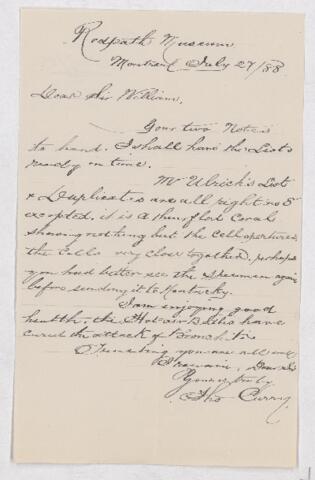 Redpath Museum
Montreal July 27/88
Dear Sir William,
Your two Notes
to hand. I shall have the Lists
ready in time.
Mr Ulrick's List
& Duplicates are all right no 5
excepted, it is a thin, flat Coral
showing nothing but the cell apertures,
the Cells very close together, perhaps
you had better see the Specimen again
before sending it to Kentucky.
I am enjoying good
health, the Hot-air Baths have
cured the attack of Bronchitis
Trusting you are all well
I remain, Dear Sir
Yours truly
Tho Curry